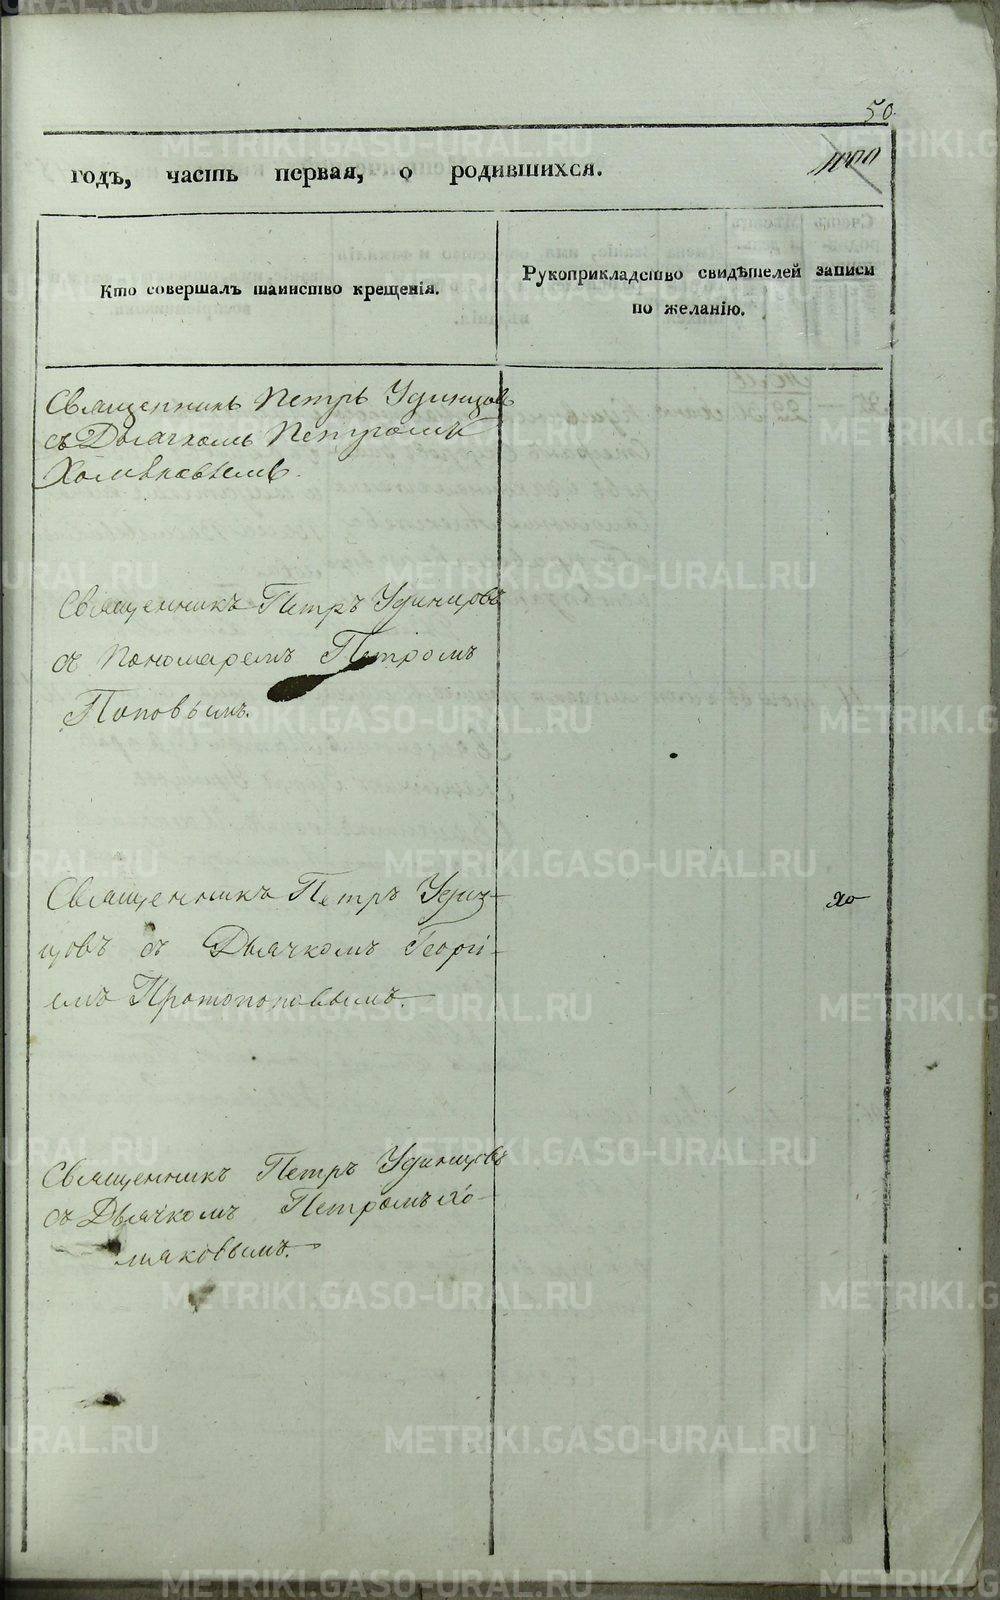 50.
годъ, часть первая, о родившихся.
Кто совершалъ таинство крещенія.
Рукоприкладство свидѣтелей записи
по желанію.
Священникъ Петръ Удинцовъ
съ Дьячкомъ Петромъ
Хомяковымъ.
Священникъ Петръ Удинцовъ
съ Пономаремъ Петромъ
Поповымъ.
Священникъ Петръ Удин-
цовъ съ Дьячкомъ Георгі-
емъ Протопоповымъ.
Священникъ Петръ Удинцовъ
съ Дьячкомъ Петромъ Хо-
мяковымъ.
METRIKI.GASO-URAL.RU